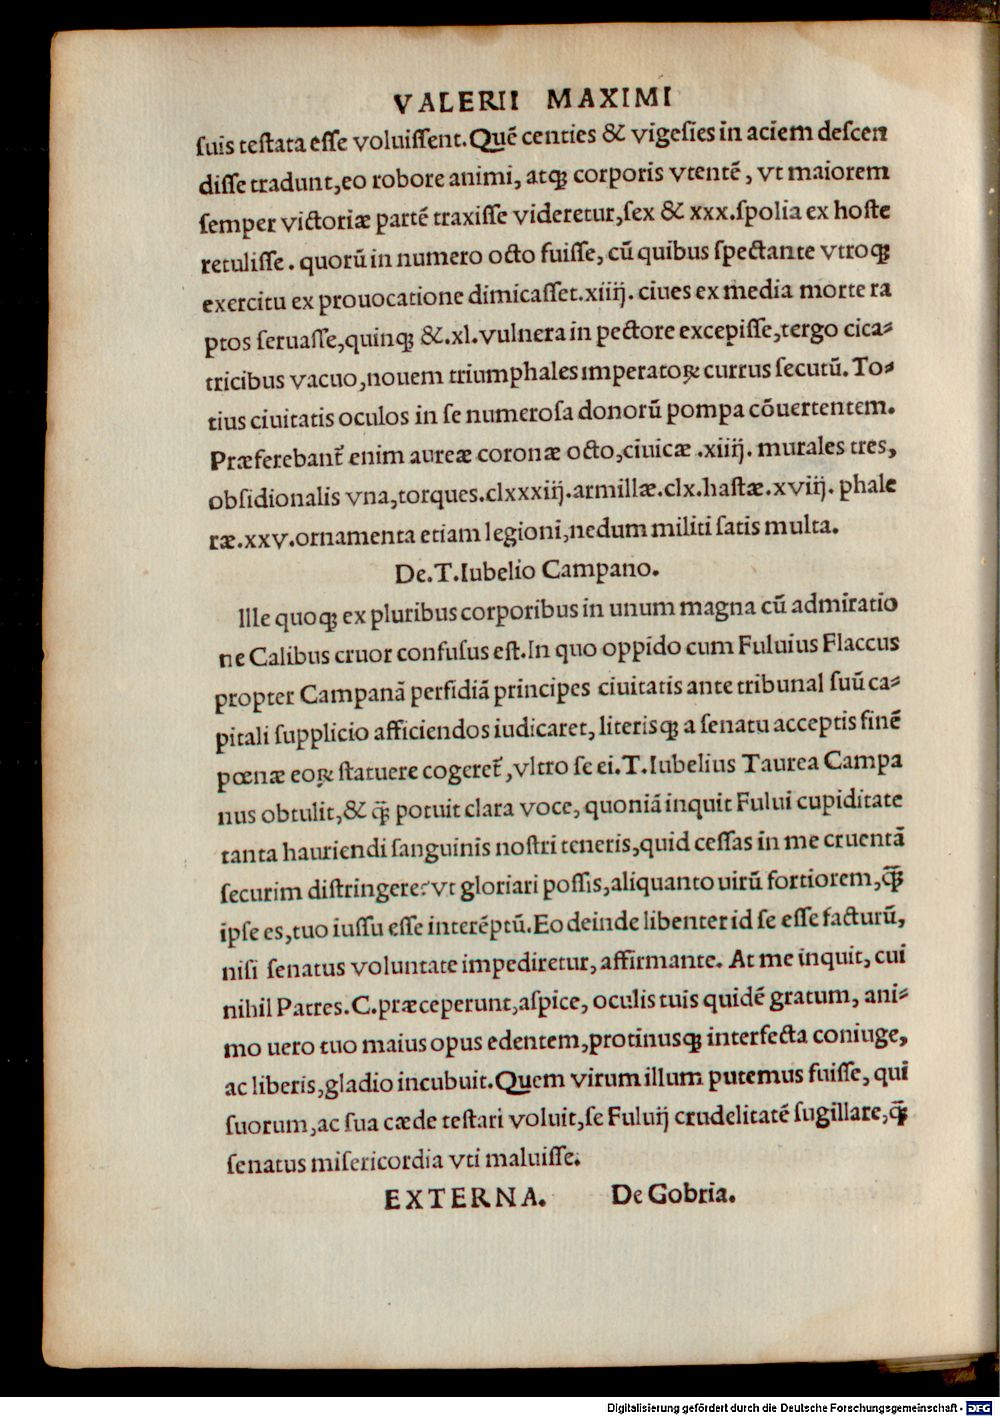 VALERII MAXIMI
ſuis teſtata eſſe voluiſſent. Quē centies & vigeſies in aciem deſcen
diſſe tradunt, eo robore animi, atqꝫ corporis vtentē, vt maiorem
ſemper victoriæ partē traxiſſe videretur, ſex & xxx. ſpolia ex hoſte
retuliſſe. quorū in numero octo fuiſſe, cū quibus ſpectante vtroqꝫ
exercitu ex prouocatione dimicaſſet. xiiij. ciues ex media morte ra
ptos ſeruaſſe, quinqꝫ &. xl. vulnera in pectore excepiſſe, tergo cica⸗
tricibus vacuo, nouem triumphales imperatoꝝ currus ſecutū. To⸗
tius ciuitatis oculos in ſe numeroſa donorū pompa cōuertentem.
Præferebant᷑ enim aureæ coronæ octo, ciuicæ .xiiij. murales tres,
obſidionalis vna, torques. clxxxiij. armillæ. clx. haſtæ. xviij. phale
ræ. xxv. ornamenta etiam legioni, nedum militi ſatis multa.
De. T. Iubelio Campano.
Ille quoqꝫ ex pluribus corporibus in unum magna cū admiratio
ne Calibus cruor confuſus eſt. In quo oppido cum Fuluius Flaccus
propter Campanā perfidiā principes ciuitatis ante tribunal ſuū ca⸗
pitali ſupplicio afficiendos iudicaret, literisqꝫ a ſenatu acceptis finē
pœnæ eoꝝ ſtatuere cogeret᷑, vltro ſe ei. T. Iubelius Taurea Campa
nus obtulit, & q̄ꝫ potuit clara voce, quoniā inquit Fului cupiditate
tanta hauriendi ſanguinis noſtri teneris, quid ceſſas in me cruentā
ſecurim diſtringere? vt gloriari poſſis, aliquanto uirū fortiorem, q̄ꝫ
ipſe es, tuo iuſſu eſſe interēptū. Eo deinde libenter id ſe eſſe facturū,
niſi ſenatus voluntate impediretur, affirmante. At me inquit, cui
nihil Patres. C. præceperunt, aſpice, oculis tuis quidē gratum, ani⸗
mo uero tuo maius opus edentem, protinusqꝫ interfecta coniuge,
ac liberis, gladio incubuit. Quem virum illum putemus fuiſſe, qui
ſuorum, ac ſua cæde teſtari voluit, ſe Fuluij crudelitatē ſugillare, q̄ꝫ
ſenatus miſericordia vti maluiſſe.
EXTERNA. De Gobria.
Digitalisierung gefördert durch die Deutsche Forschungsgemeinschaft - DFG